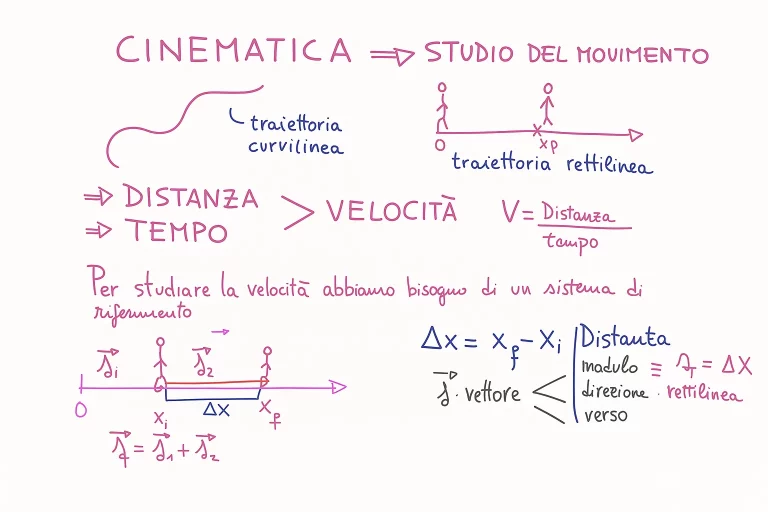 CINEMATICA ⇒ STUDIO DEL MOVIMENTO
traiettoria
curvilinea
O
xp
traiettoria rettilinea
⇒ DISTANZA
⇒ TEMPO
> VELOCITÀ
V = Distanza
tempo
Per studiare la velocità abbiamo bisogno di un sistema di
riferimento
O
xi
Δx
xf
Δx = xf - Xi
Distanta
modulo
= ΔX
direzione · rettilinea
verso
· vettore